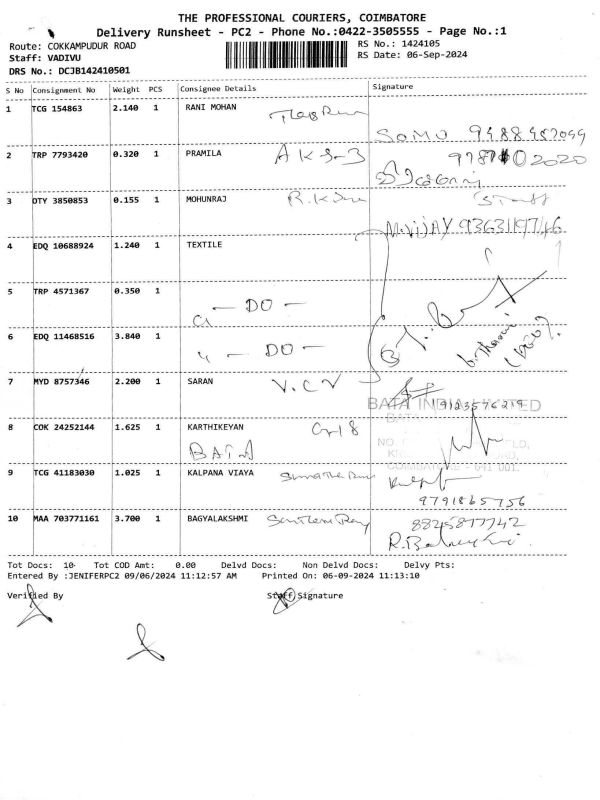 THE PROFESSIONAL COURIERS, COIMBATORE
Delivery Runsheet - PC2 - Phone No.:0422-3505555 - Page No.:1
Route: COKKAMPUDUR ROAD
Staff: VADIVU
DRS No.: DCJB142410501
RS No.: 1424105
RS Date: 06-Sep-2024
S No Consignment No Weight PCS Consignee Details Signature
1 TCG 154863 2.140 1 RANI MOHAN
SOMU
2 TRP 7793420 0.320 1 PRAMILA AKS-3
3 OTY 3850853 0.155 1 MOHUNRAJ
Staff
M.VIJAY
4 EDQ 10688924 1.240 1 TEXTILE
5 TRP 4571367 0.350 1
— DO —
6 EDQ 11468516 3.840 1
— DO —
7 MYD 8757346 2.200 1 SARAN V.CV
BATA INDIA LIMITED
9123576219
8 COK 24252144 1.625 1 KARTHIKEYAN
BATA
COIMBATORE - 641 001.
9 TCG 41183030 1.025 1 KALPANA VIAYA
9791865756
10 MAA 703771161 3.700 1 BAGYALAKSHMI
8825877742
Tot Docs: 10 Tot COD Amt: 0.00 Delvd Docs: Non Delvd Docs: Delvy Pts:
Entered By :JENIFERPC2 09/06/2024 11:12:57 AM Printed On: 06-09-2024 11:13:10
Verified By Staff Signature